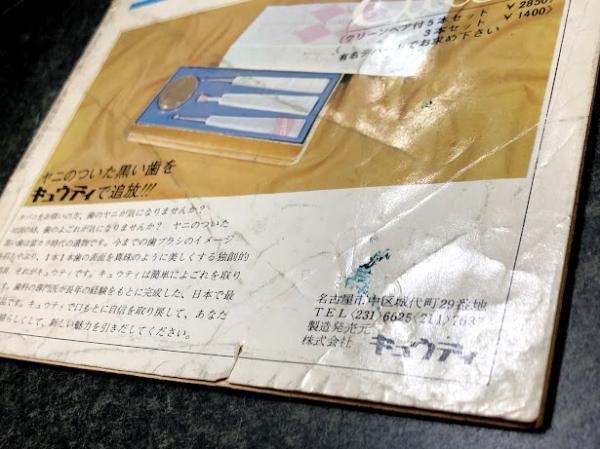 (クリーンペア付5本セット ¥2850)
3本セット ¥1400)
有名デパートでお求め下さい
ヤニのついた黒い歯を
キュウティで追放!!!
タバコをお喫いの方、歯のヤニが気になりませんか?
対話の時、歯のよごれが気になりませんか? ヤニのついた
黒い歯は富さ時代の遺物です。今までの歯ブラシのイメージ
1本1本歯の表面を真珠のように美しくする独創的
それがキュウティです。キュウティは簡単によごれを取り
歯科の専門医が長年の経験をもとに完成した、日本で最
です。キュウティで口もとに自信を取り戻して、あなた
晴らしくして、新しい魅力を引きだしてください。
名古屋市中区城代町29番地
TEL〈231〉6625〈211〉7637
製造発売元
株式会社 キュウティ